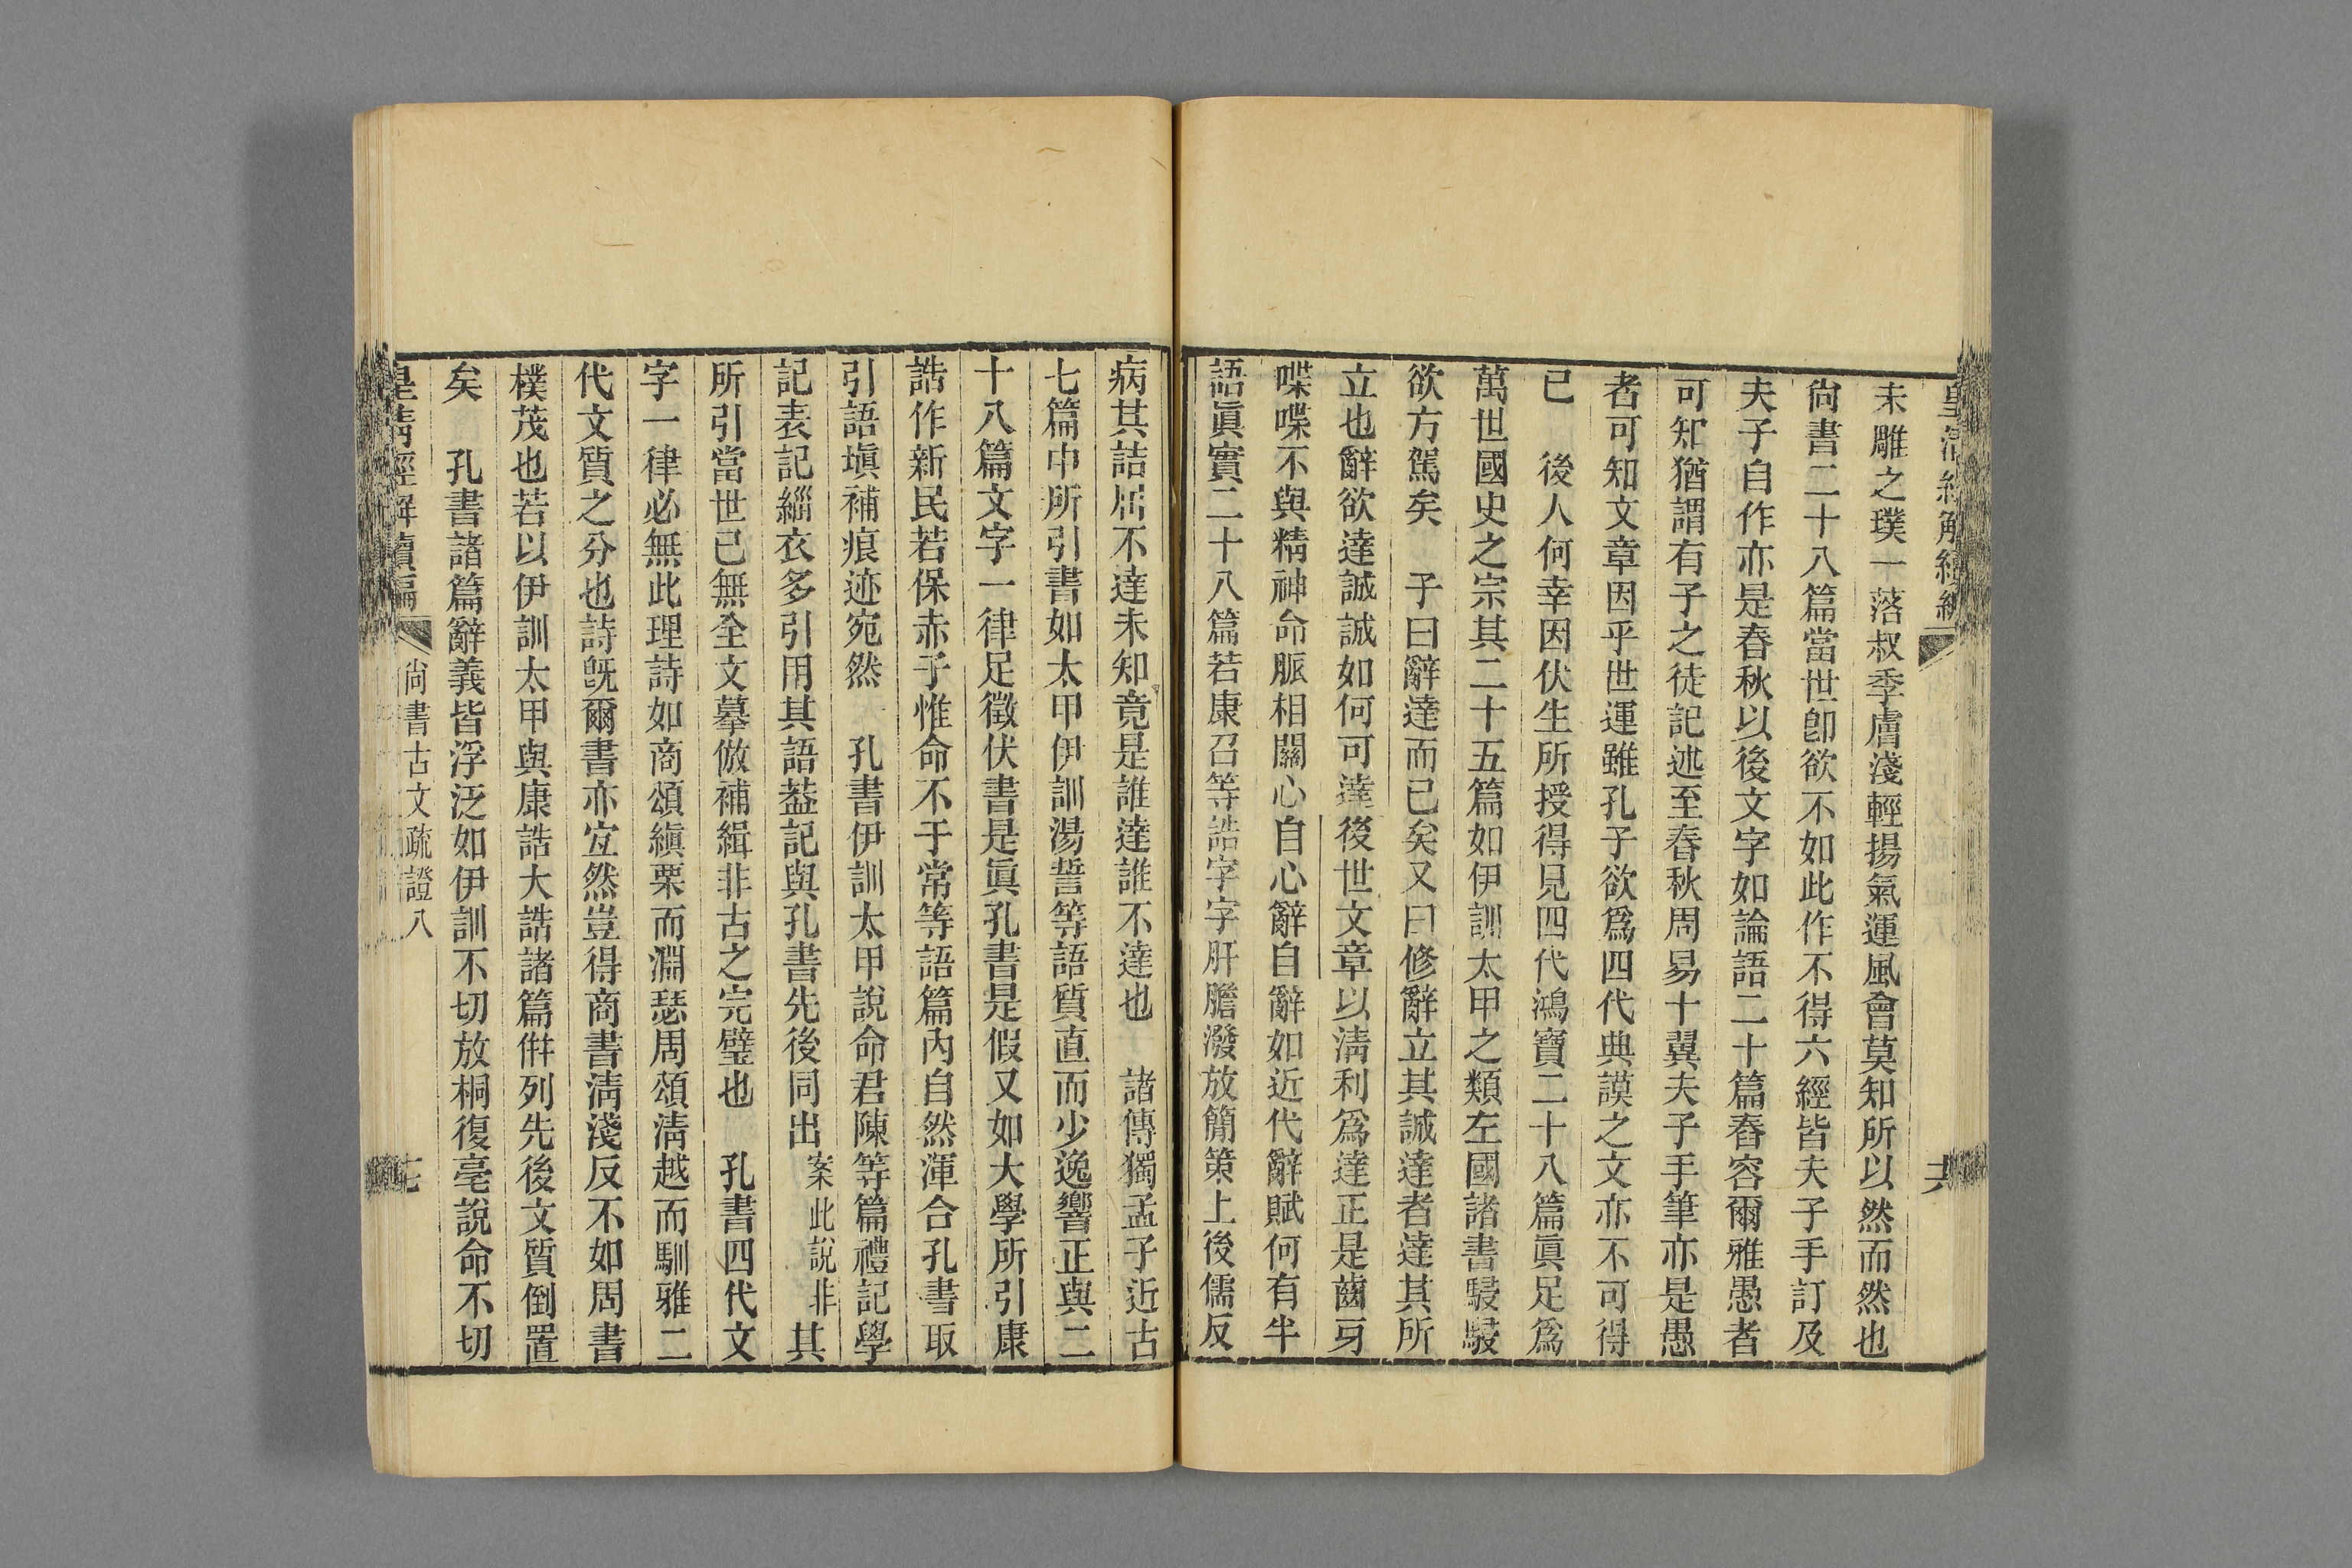 皇清經解續編
未雕之璞一落叔季膚淺輕揚氣運風會莫知所以然而然也
尙書二十八篇當世卽欲不如此作不得六經皆夫子手訂及
夫子自作亦是春秋以後文字如論語二十篇舂容爾雅愚者
可知猶謂有子之徒記述至春秋周易十翼夫子手筆亦是愚
者可知文章因乎世運雖孔子欲爲四代典謨之文亦不可得
已　後人何幸因伏生所授得見四代鴻寶二十八篇眞足爲
萬世國史之宗其二十五篇如伊訓太甲之類左國諸書駸駸
欲方駕矣　子曰辭達而已矣又曰修辭立其誠達者達其所
立也辭欲達誠誠如何可達後世文章以淸利爲達正是齒牙
喋喋不與精神命脈相關心自心辭自辭如近代辭賦何有半
語眞實二十八篇若康召等誥字字肝膽潑放簡策上後儒反
病其詰屈不達未知竟是誰達誰不達也　諸傳獨孟子近古
七篇中所引書如太甲伊訓湯誓等語質直而少逸響正與二
十八篇文字一律足徵伏書是眞孔書是假又如大學所引康
誥作新民若保赤子惟命不于常等語篇內自然渾合孔書取
引語塡補痕迹宛然　孔書伊訓太甲說命君陳等篇禮記學
記表記緇衣多引用其語葢記與孔書先後同出案此說非其
所引當世已無全文摹倣補緝非古之完璧也　孔書四代文
字一律必無此理詩如商頌縝栗而淵瑟周頌淸越而馴雅二
代文質之分也詩旣爾書亦宐然豈得商書淸淺反不如周書
樸茂也若以伊訓太甲與康誥大誥諸篇倂列先後文質倒置
矣　孔書諸篇辭義皆浮泛如伊訓不切放桐復亳說命不切
皇淸經解續編　尙書古文疏證八